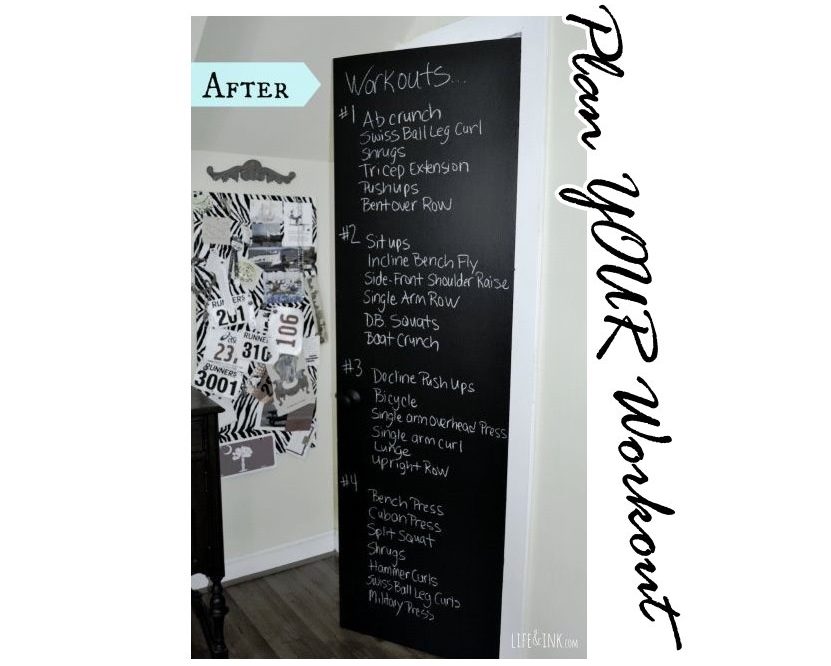 AFTER
Workouts...
#1 Ab crunch
Swiss Ball Leg Curl
Shrugs
Tricep Extension
Pushups
Bentover Row
#2 Situps
Incline Bench Fly
Side-Front Shoulder Raise
Single Arm Row
D.B. Squats
Boat Crunch
#3 Decline Push Ups
Bicycle
Single arm overhead Press
Single arm curl
Lunge
Upright Row
#4
Bench Press
Cuban Press
Split Squat
Shrugs
Hammer Curls
Swiss Ball Leg Curls
Military Press
RUNNERS
201
106
23
RUNNERS
310
RUNNERS
3001
LIFE&INK.COM
Plan YOUR Workout